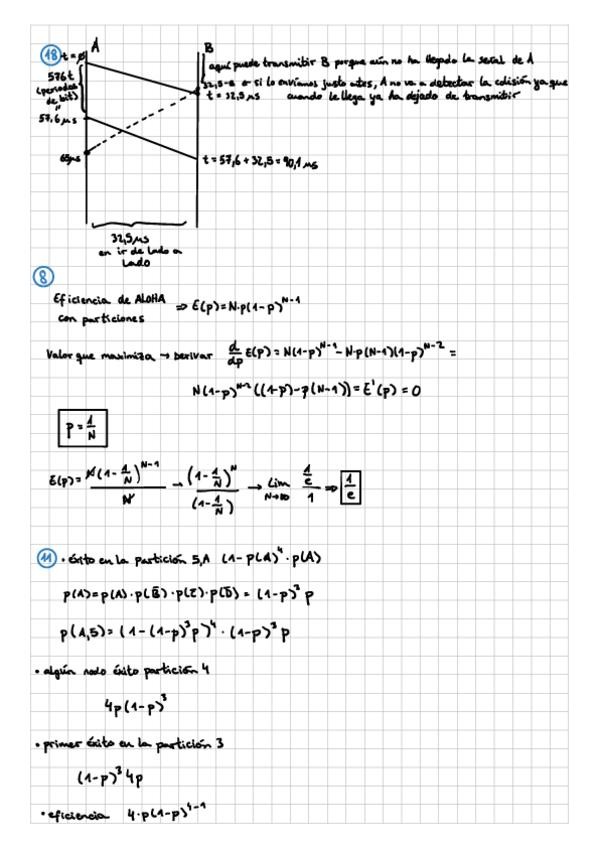 18 t = 0 A B
aquí puede transmitir B porque aún no ha llegado la señal de A
576 t
(periodos
de bit)
"
57,6 μs
32,5-ε si lo envíamos justo antes, A no va a detectar la colisión ya que
t = 32,5 μs cuando le llega ya ha dejado de transmitir
65μs
t = 57,6 + 32,5 = 90,1 μs
32,5μs
en ir de lado a
lado
8
Eficiencia de ALOHA ⇒ E(p) = N·p(1-p)^N-1
con particiones
Valor que maximiza → derivar d/dp E(p) = N(1-p)^N-1 - N·p(N-1)(1-p)^N-2 =
N(1-p)^N-2 ((1-p) - p(N-1)) = E'(p) = 0
p = 1/N
E(p) = N(1-1/N)^N-1 / N → (1-1/N)^N / (1-1/N) → lim N→∞ 1/e / 1 ⇒ 1/e
11 · éxito en la partición 5,A (1-p(A))^4 · p(A)
p(A) = p(A) · p(B̄) · p(C̄) · p(D̄) = (1-p)^3 p
p(A,5) = (1-(1-p)^3 p)^4 · (1-p)^3 p
· algún nodo éxito partición 4
4p(1-p)^3
· primer éxito en la partición 3
(1-p)^3 4p
· eficiencia 4·p(1-p)^4-1